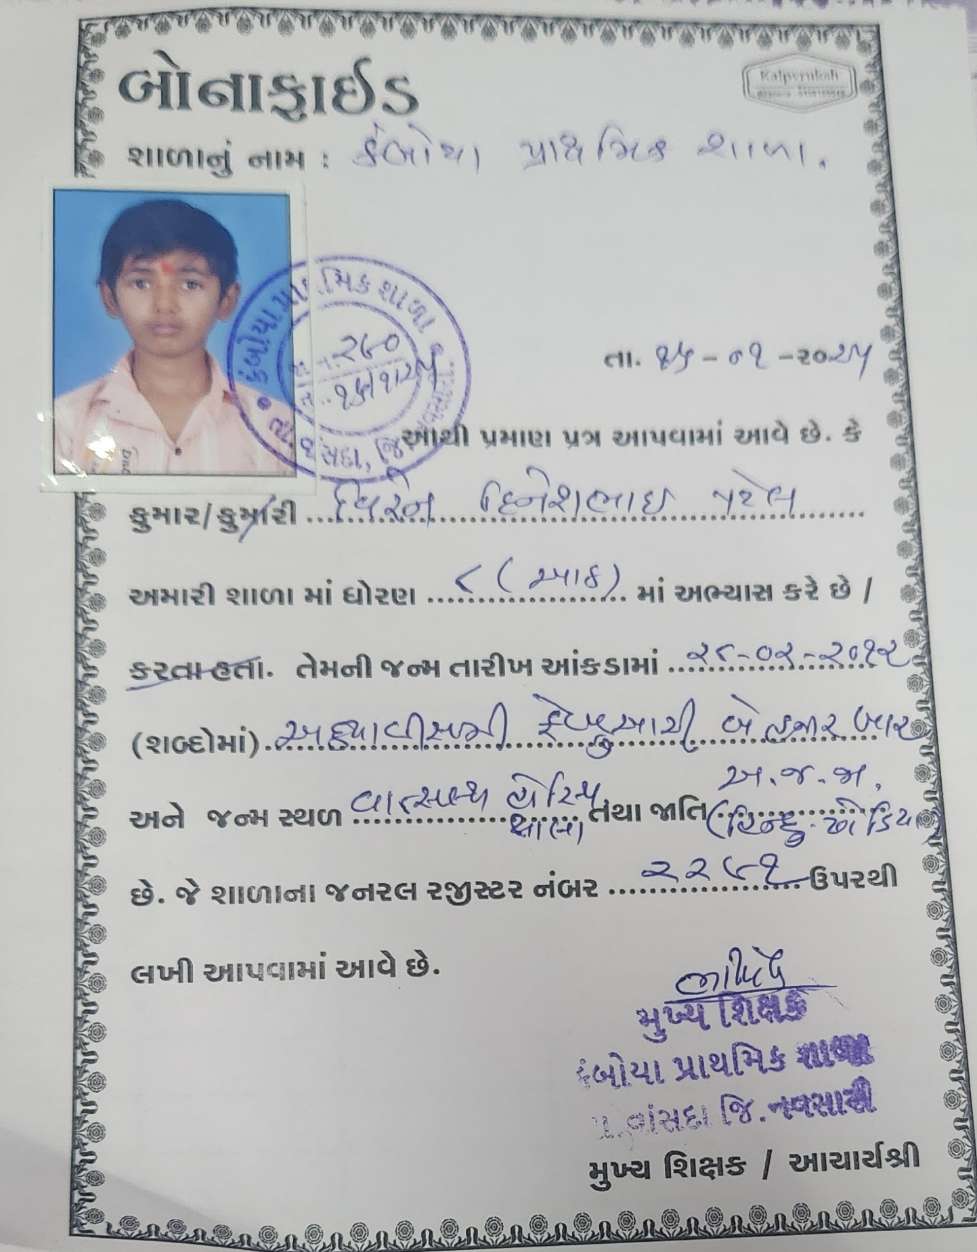 બોનાફાઈડ
Kalpvruksh
શાળાનું નામ : કંબોયા પ્રાથમિક શાળા.
કંબોયા પ્રાથમિક શાળા
તા. વાંસદા, જિ.
તા. ૧૫-૦૧-૨૦૨૫
આથી પ્રમાણ પત્ર આપવામાં આવે છે. કે
કુમાર/કુમારી વિરેન દિનેશભાઇ પટેલ
અમારી શાળા માં ધોરણ ૮ (આઠ) માં અભ્યાસ કરે છે /
કરતા હતા. તેમની જન્મ તારીખ આંકડામાં ૨૮-૦૨-૨૦૧૨
(શબ્દોમાં) અઠ્ઠાવીસમી ફેબ્રુઆરી બે હજાર બાર
અને જન્મ સ્થળ તથા જાતિ અ.જ.જા.
છે. જે શાળાના જનરલ રજીસ્ટર નંબર ઉપરથી
લખી આપવામાં આવે છે.
મુખ્ય શિક્ષક
કંબોયા પ્રાથમિક શાળા
વાંસદા જિ. નવસારી
મુખ્ય શિક્ષક / આચાર્યશ્રી